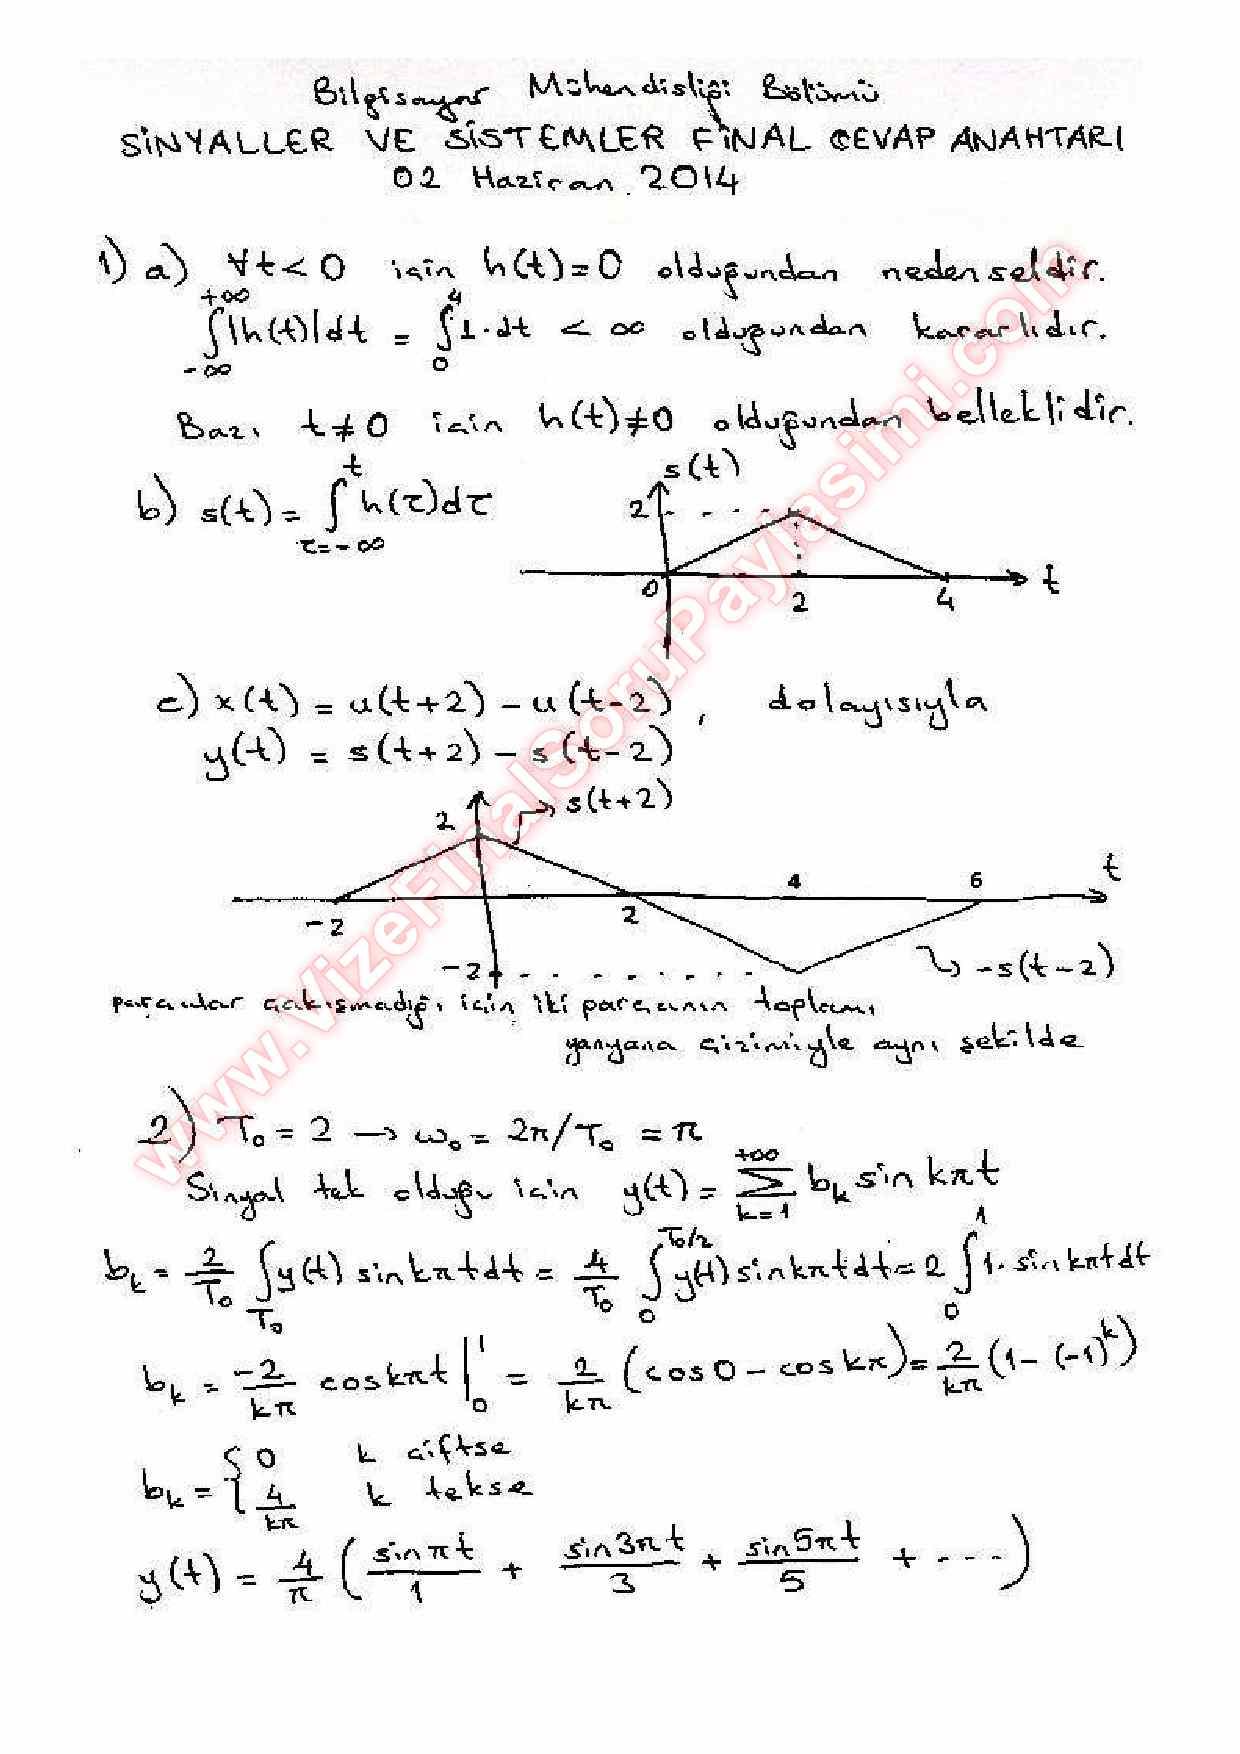 Bilgisayar Mühendisliği Bölümü
SİNYALLER VE SİSTEMLER FİNAL CEVAP ANAHTARI
02 Haziran 2014
1) a) ∀t<0 için h(t)=0 olduğundan nedenseldir.
∫_{-∞}^{+∞} |h(t)|dt = ∫_0^4 1·dt < ∞ olduğundan kararlıdır.
Bazı t≠0 için h(t)≠0 olduğundan belleklidir.
b) s(t) = ∫_{τ=-∞}^{t} h(τ)dτ
s(t)
2
0 2 4 t
c) x(t) = u(t+2) - u(t-2), dolayısıyla
y(t) = s(t+2) - s(t-2)
2 s(t+2)
4 6 t
-2 2
-2 -s(t-2)
parçalar çakışmadığı için iki parçanın toplamı
yanyana çizimiyle aynı şekilde
2) T₀ = 2 → ω₀ = 2π/T₀ = π
Sinyal tek olduğu için y(t) = ∑_{k=1}^{+∞} b_k sin kπt
b_k = 2/T₀ ∫_{T₀} y(t) sin kπt dt = 4/T₀ ∫_0^{T₀/2} y(t) sin kπt dt = 2 ∫_0^1 1·sin kπt dt
b_k = -2/kπ cos kπt |_0^1 = 2/kπ (cos 0 - cos kπ) = 2/kπ (1-(-1)^k)
b_k = { 0 k çiftse
4/kπ k tekse
y(t) = 4/π ( sin πt/1 + sin 3πt/3 + sin 5πt/5 + ---)
www.VizeFinalSoruPaylasimi.com